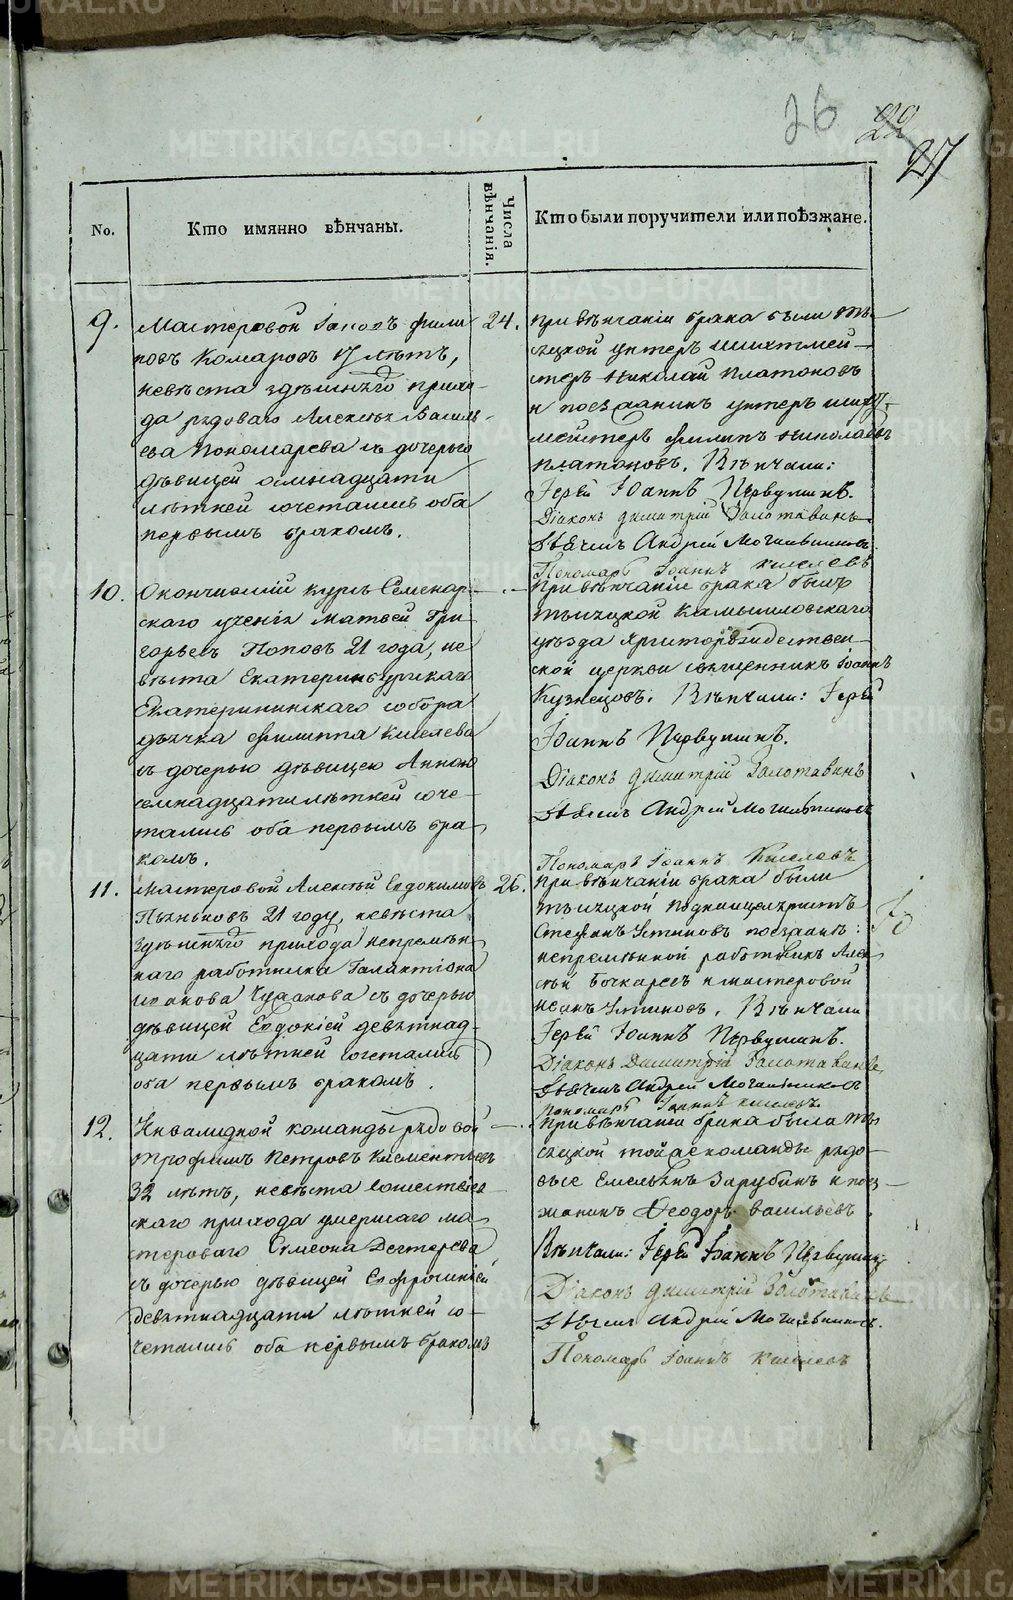 26 22
27
No.
Кто имянно вѣнчаны.
Числа вѣнчанія.
Кто были поручители или поѣзжане.
9.
Мастеровой Іаковъ Фили
повъ Комаровъ 17 лѣтъ,
невѣста здѣшнѣго прихо-
да рядоваго Алексѣя Василь-
ева Пономарева съ дочерью
дѣвицей осмнадцати
лѣтней сочетались оба
первымъ бракомъ.
24.
При вѣнчаніи брака были ты-
сяцкой унтеръ шихтмей-
стеръ Николай Платоновъ
и поезжанинъ унтеръ шихт-
мейстеръ Филипъ Николаевъ
Платоновъ. Вѣнчали:
Іерей Іоаннъ Первушинъ.
Діаконъ Димитрій Золотавинъ
Дьячекъ Андрей Могильниковъ.
Пономарь Іоаннъ Киселевъ
10.
Окончившій курсъ Семенар-
скаго ученія Матвей Гри-
горьевъ Поповъ 21 года, не
вѣста Екатеринбургскаго
Екатерининскаго собора
дьячка Филиппа Киселева
съ дочерью дѣвицею Анною
семнадцатилѣтней соче-
тались оба первымъ бра-
комъ.
При вѣнчаніи брака былъ
тысяцкой Камышловскаго
уѣзда
ской церкви священникъ Іоаннъ
Кузнецовъ. Вѣнчали: Іерей
Іоаннъ Первушинъ.
Діаконъ Димитрій Золотавинъ
Дьячекъ Андрей Могильниковъ
Пономарь Іоаннъ Киселевъ
11.
Мастеровой Алексѣй Евдокимовъ
Пьянковъ 21 году, невѣста
здѣшнѣго прихода непремѣн-
наго работника Галактіона
Чудакова съ дочерью
дѣвицей Евдокіей девятнад-
цати лѣтней сочетались
оба первымъ бракомъ.
26.
При вѣнчаніи брака были
тысяцкой
Стефанъ Устиновъ поезжане:
непремѣнной работникъ Алек
сѣй Бочкаревъ и мастеровой
Иванъ Устиновъ. Вѣнчали
Іерей Іоаннъ Первушинъ.
Діаконъ Димитрій Золотавинъ
Дьячекъ Андрей Могильниковъ
Пономарь Іоаннъ Киселевъ
12.
Инвалидной команды рядовой
Трофимъ Петровъ Клементьевъ
32 лѣтъ, невѣста Сошествіев-
скаго прихода умершаго ма-
стероваго Симеона Дегтерева
съ дочерью дѣвицей Евфросиніей
девятнадцати лѣтней со-
четались оба первымъ бракомъ
При вѣнчаніи брака были ты-
сяцкой той же команды рядо-
вые Емельянъ Зарубинъ и поез-
жанинъ Ѳеодоръ Васильевъ.
Вѣнчали: Іерей Іоаннъ Первушинъ
Діаконъ Димитрій Золотавинъ
Дьячекъ Андрей Могильниковъ.
Пономарь Іоаннъ Киселевъ
METRIKI.GASO-URAL.RU